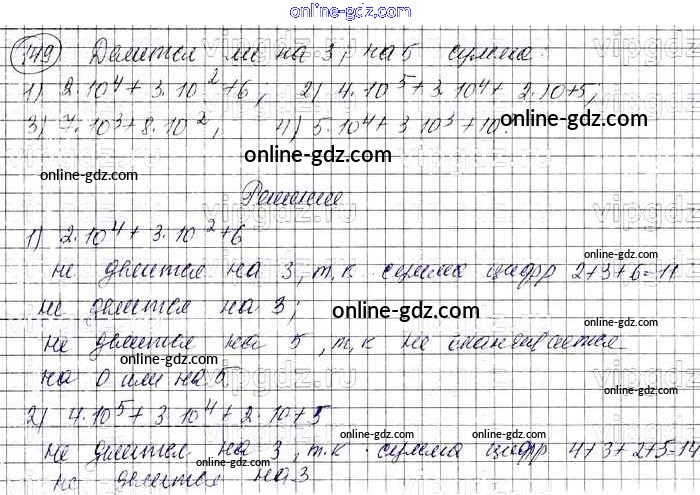 online-gdz.com
749 Делится ли на 3, на 5 сумма:
1) 2·10⁴ + 3·10² + 6, 2) 4·10⁵ + 3·10⁴ + 2·10 + 5;
3) 7·10³ + 8·10², 4) 5·10⁴ + 3·10³ + 10?
online-gdz.com
online-gdz.com
online-gdz.com
Решение
vipgdz.ru
1) 2·10⁴ + 3·10² + 6
online-gdz.com
не делится на 3, т.к сумма цифр 2+3+6=11
не делится на 3;
online-gdz.com
online-gdz.com
не делится на 5, т,к не оканчивается
на 0 или на 5
vipgdz.ru
2) 4·10⁵ + 3·10⁴ + 2·10 + 5
online-gdz.com online-gdz.com
не делится на 3, т.к сумма цифр 4+3+2+5=14
не делится на 3
online-gdz.com
online-gdz.com